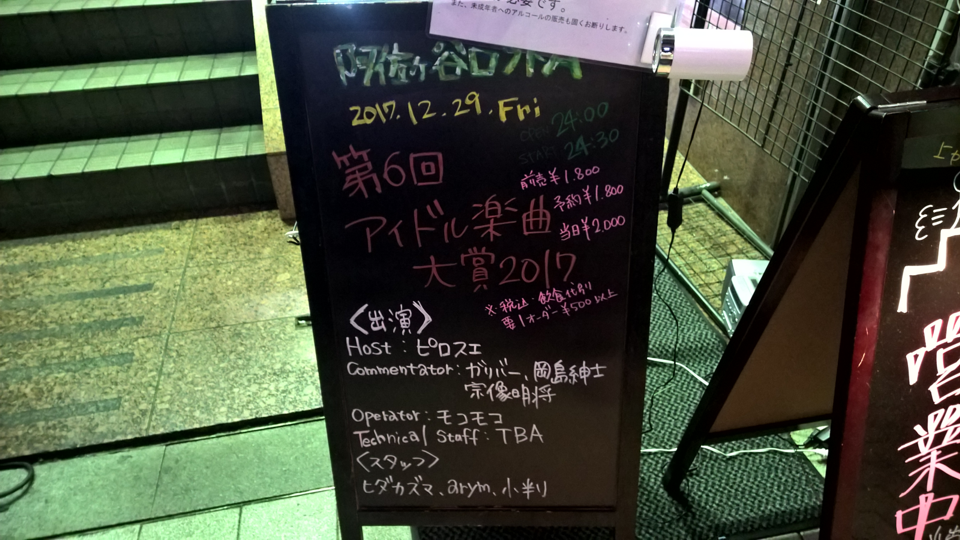 必要です。
また、未成年者へのアルコールの販売も固くお断りします。
阿佐ヶ谷ロフトA
2017.12.29.Fri
OPEN 24:00
START 24:30
第6回
アイドル楽曲
大賞2017
前売¥1.800
予約¥1.800
当日¥2.000
※税込・飲食代別
要1オーダー¥500以上
〈出演〉
Host:ピロスエ
Commentator:ガリバー、岡島紳士
宗像明将
Operator:モコモコ
Technical Staff:TBA
〈スタッフ〉
ヒダカズマ、arym、小判り
営業中